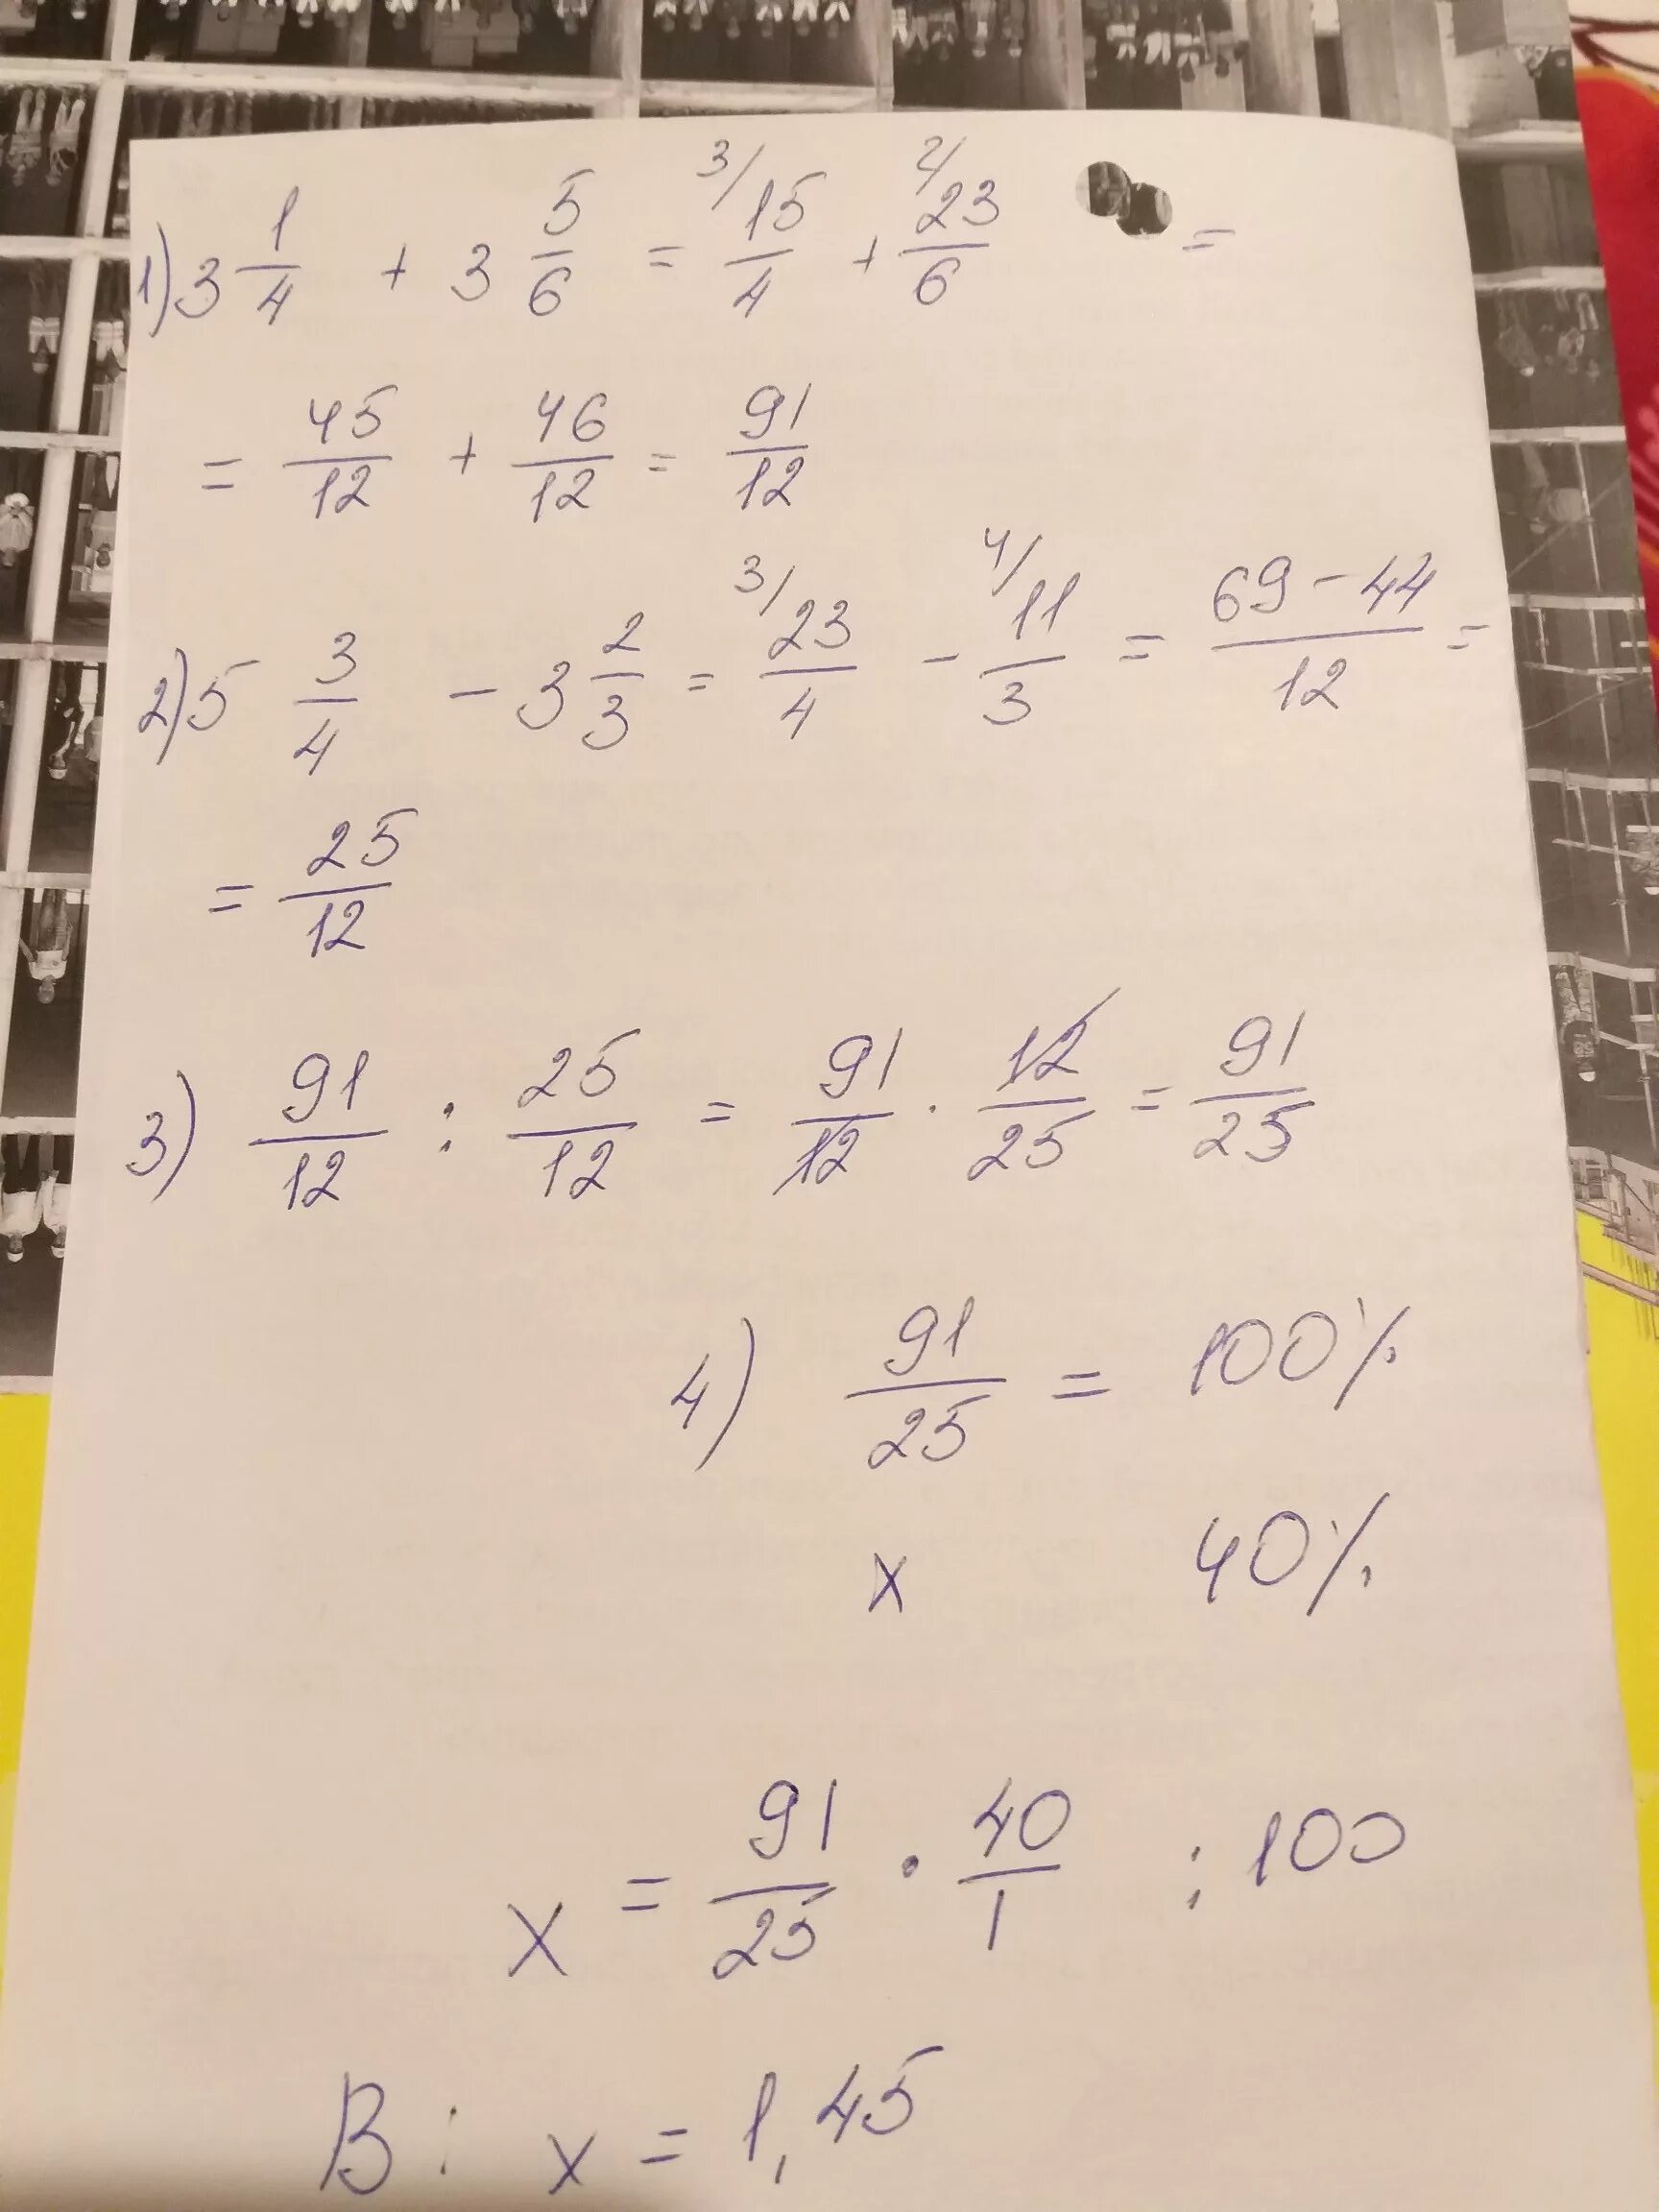 1) 3 1/4 + 3 5/6 = 3/ 15/4 + 2/ 23/6 =
= 45/12 + 46/12 = 91/12
2) 5 3/4 - 3 2/3 = 3/ 23/4 - 4/ 11/3 = 69-44/12 =
= 25/12
3) 91/12 : 25/12 = 91/12 · 12/25 = 91/25
4) 91/25 = 100%
x 40%
x = 91/25 · 40/1 : 100
В: x = 1,45